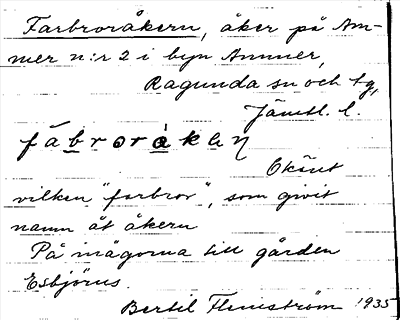 Farbroråkern, åker på Am-
mer n:r 2 i byn Ammer,
Ragunda sn och tg,
Jämtl. l.
fábroràken
Okänt
vilken "farbror", som givit
namn åt åkern
På inägorna till gården
Esbjörns.
Bertil Flemström 1935